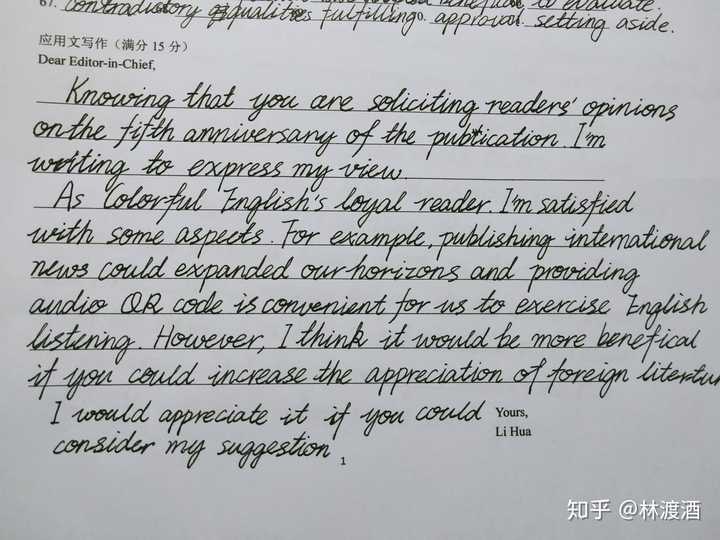 67. contradictory qualities fulfilling approval setting aside.
应用文写作（满分 15 分）
Dear Editor-in-Chief,
Knowing that you are soliciting readers' opinions
on the fifth anniversary of the publication. I'm
writing to express my view.
As Colorful English's loyal reader. I'm satisfied
with some aspects. For example, publishing international
news could expanded our horizons and providing
audio QR code is convenient for us to exercise English
listening. However, I think it would be more benefical
if you could increase the appreciation of foreign litertur
I would appreciate it if you could
consider my suggestion
Yours,
Li Hua
1
知乎 @林渡酒